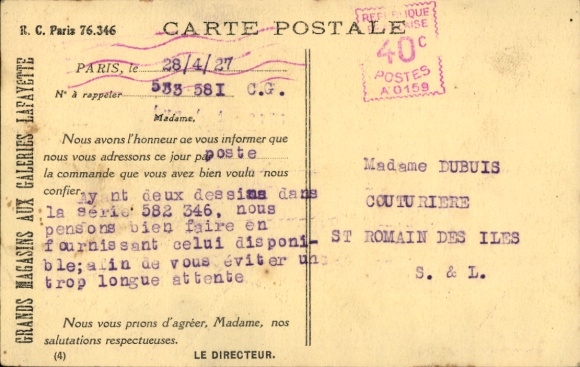 R. C. Paris 76.346
CARTE POSTALE
REPUBLIQUE
FRANÇAISE
40 c
POSTES
A 0159
GRANDS MAGASINS AUX GALERIES LAFAYETTE
PARIS, le 28/4/27
N° à rappeler 533 581 C.G.
Madame,
Nous avons l'honneur de vous informer que
nous vous adressons ce jour par poste
la commande que vous avez bien voulu nous
confier.
Ay nt deux dessins dans
la série 582 346, nous
pensons bien faire en
fournissant celui disponi-
ble;afin de vous éviter un
trop longue attente
Nous vous prions d'agréer, Madame, nos
salutations respectueuses.
(4) LE DIRECTEUR.
Madame DUBUIS
COUTURIERE
ST ROMAIN DES ILES
S. & L.